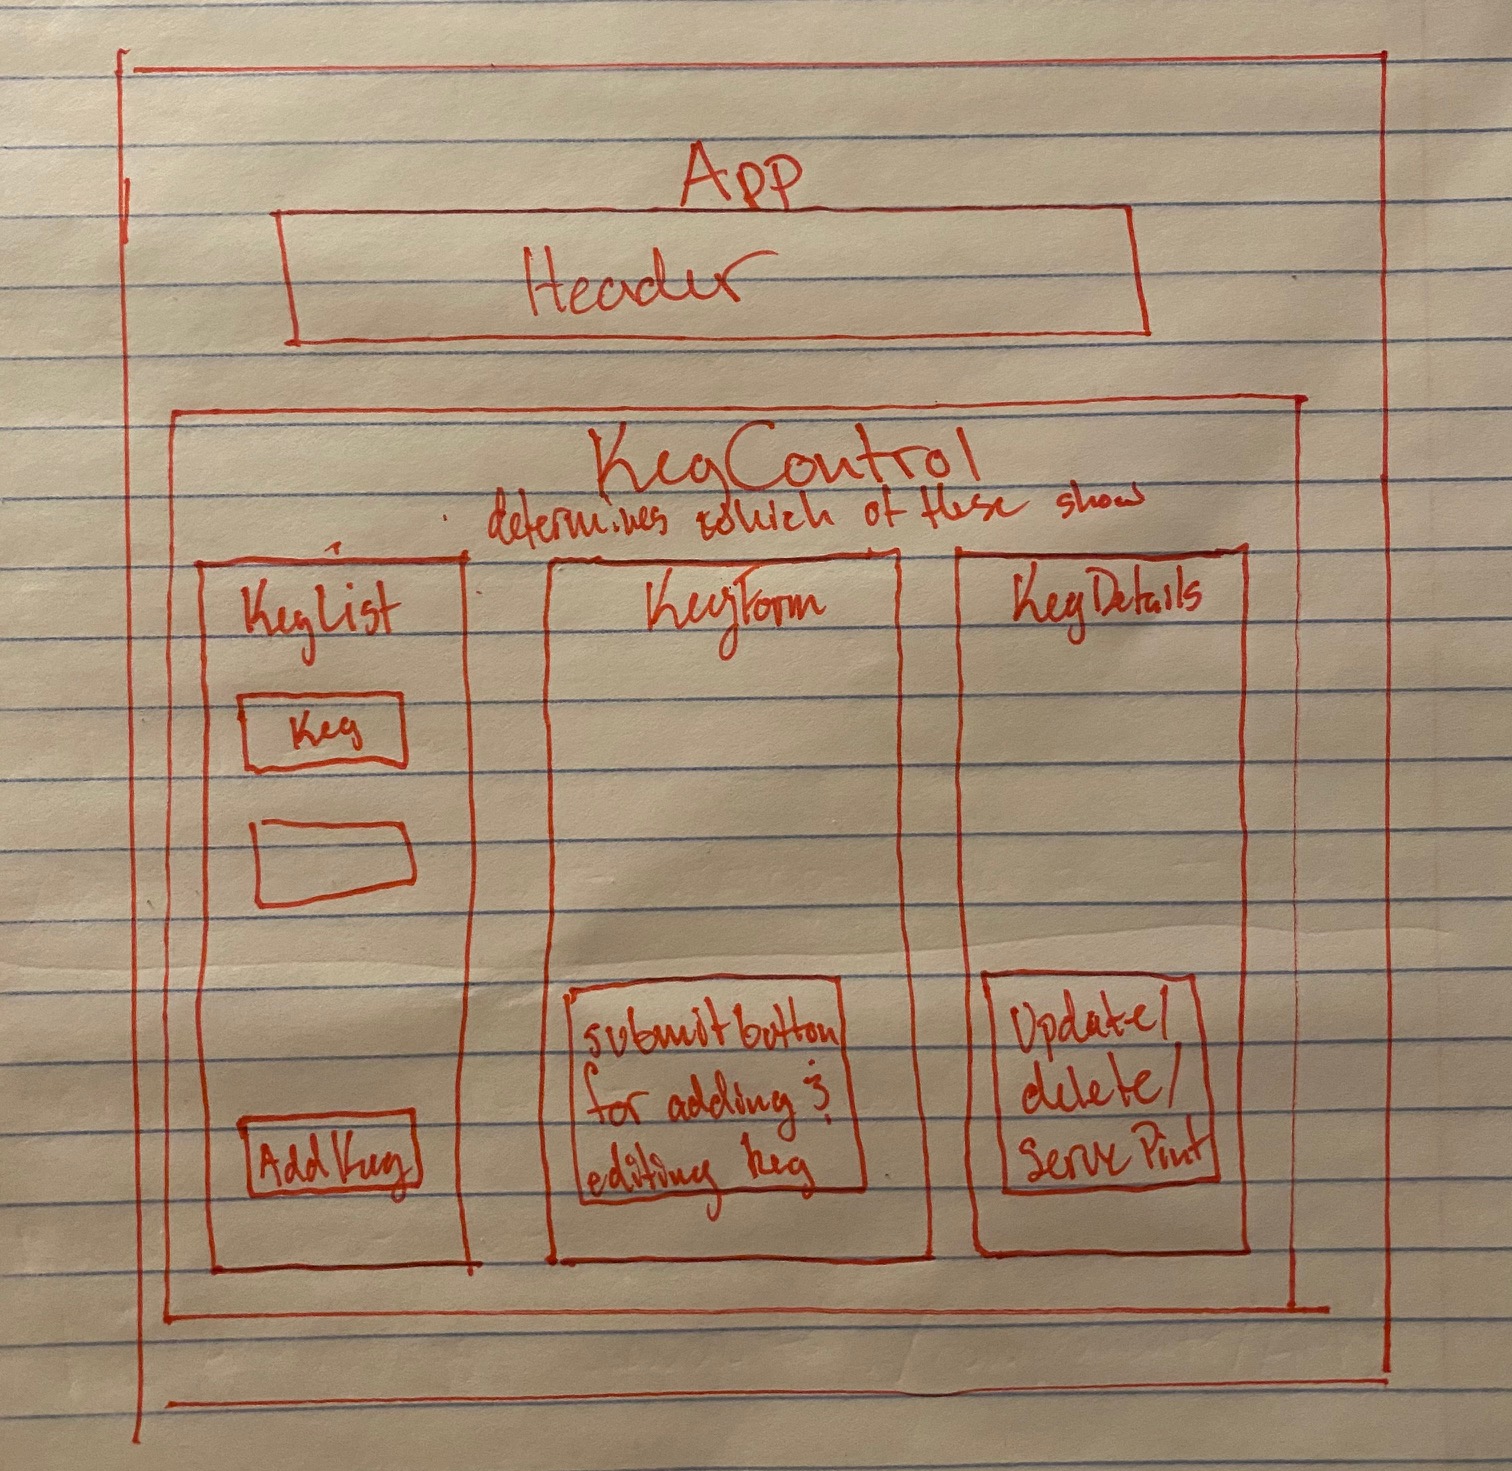 App
Header
KegControl
determines which of these show
KegList
Keg
Add Keg
KegForm
submit button
for adding &
editing keg
KegDetails
Update/
delete/
Serve Pint